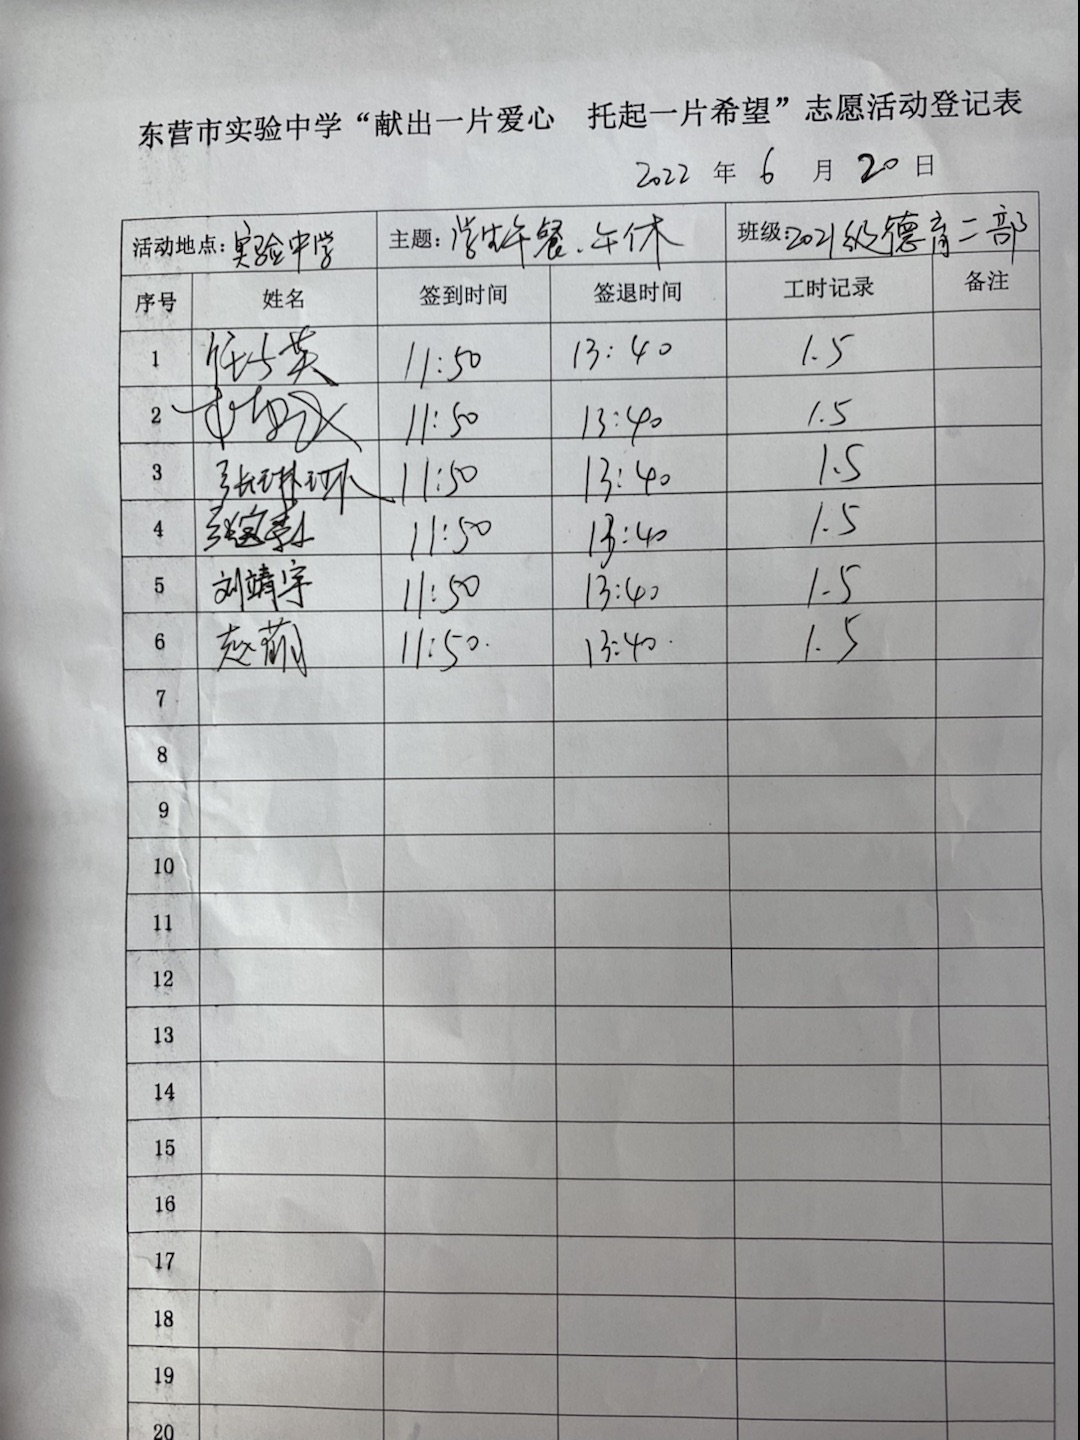 东营市实验中学“献出一片爱心 托起一片希望”志愿活动登记表
2022 年 6 月 20 日
活动地点：实验中学 主题：学生午餐、午休 班级：2021级德育二部
序号 姓名 签到时间 签退时间 工时记录 备注
1 11:50 13:40 1.5
2 11:50 13:40 1.5
3 张琳琳 11:50 13:40 1.5
4 11:50 13:40 1.5
5 刘靖宇 11:50 13:40 1.5
6 赵萌 11:50. 13:40. 1.5
7
8
9
10
11
12
13
14
15
16
17
18
19
20